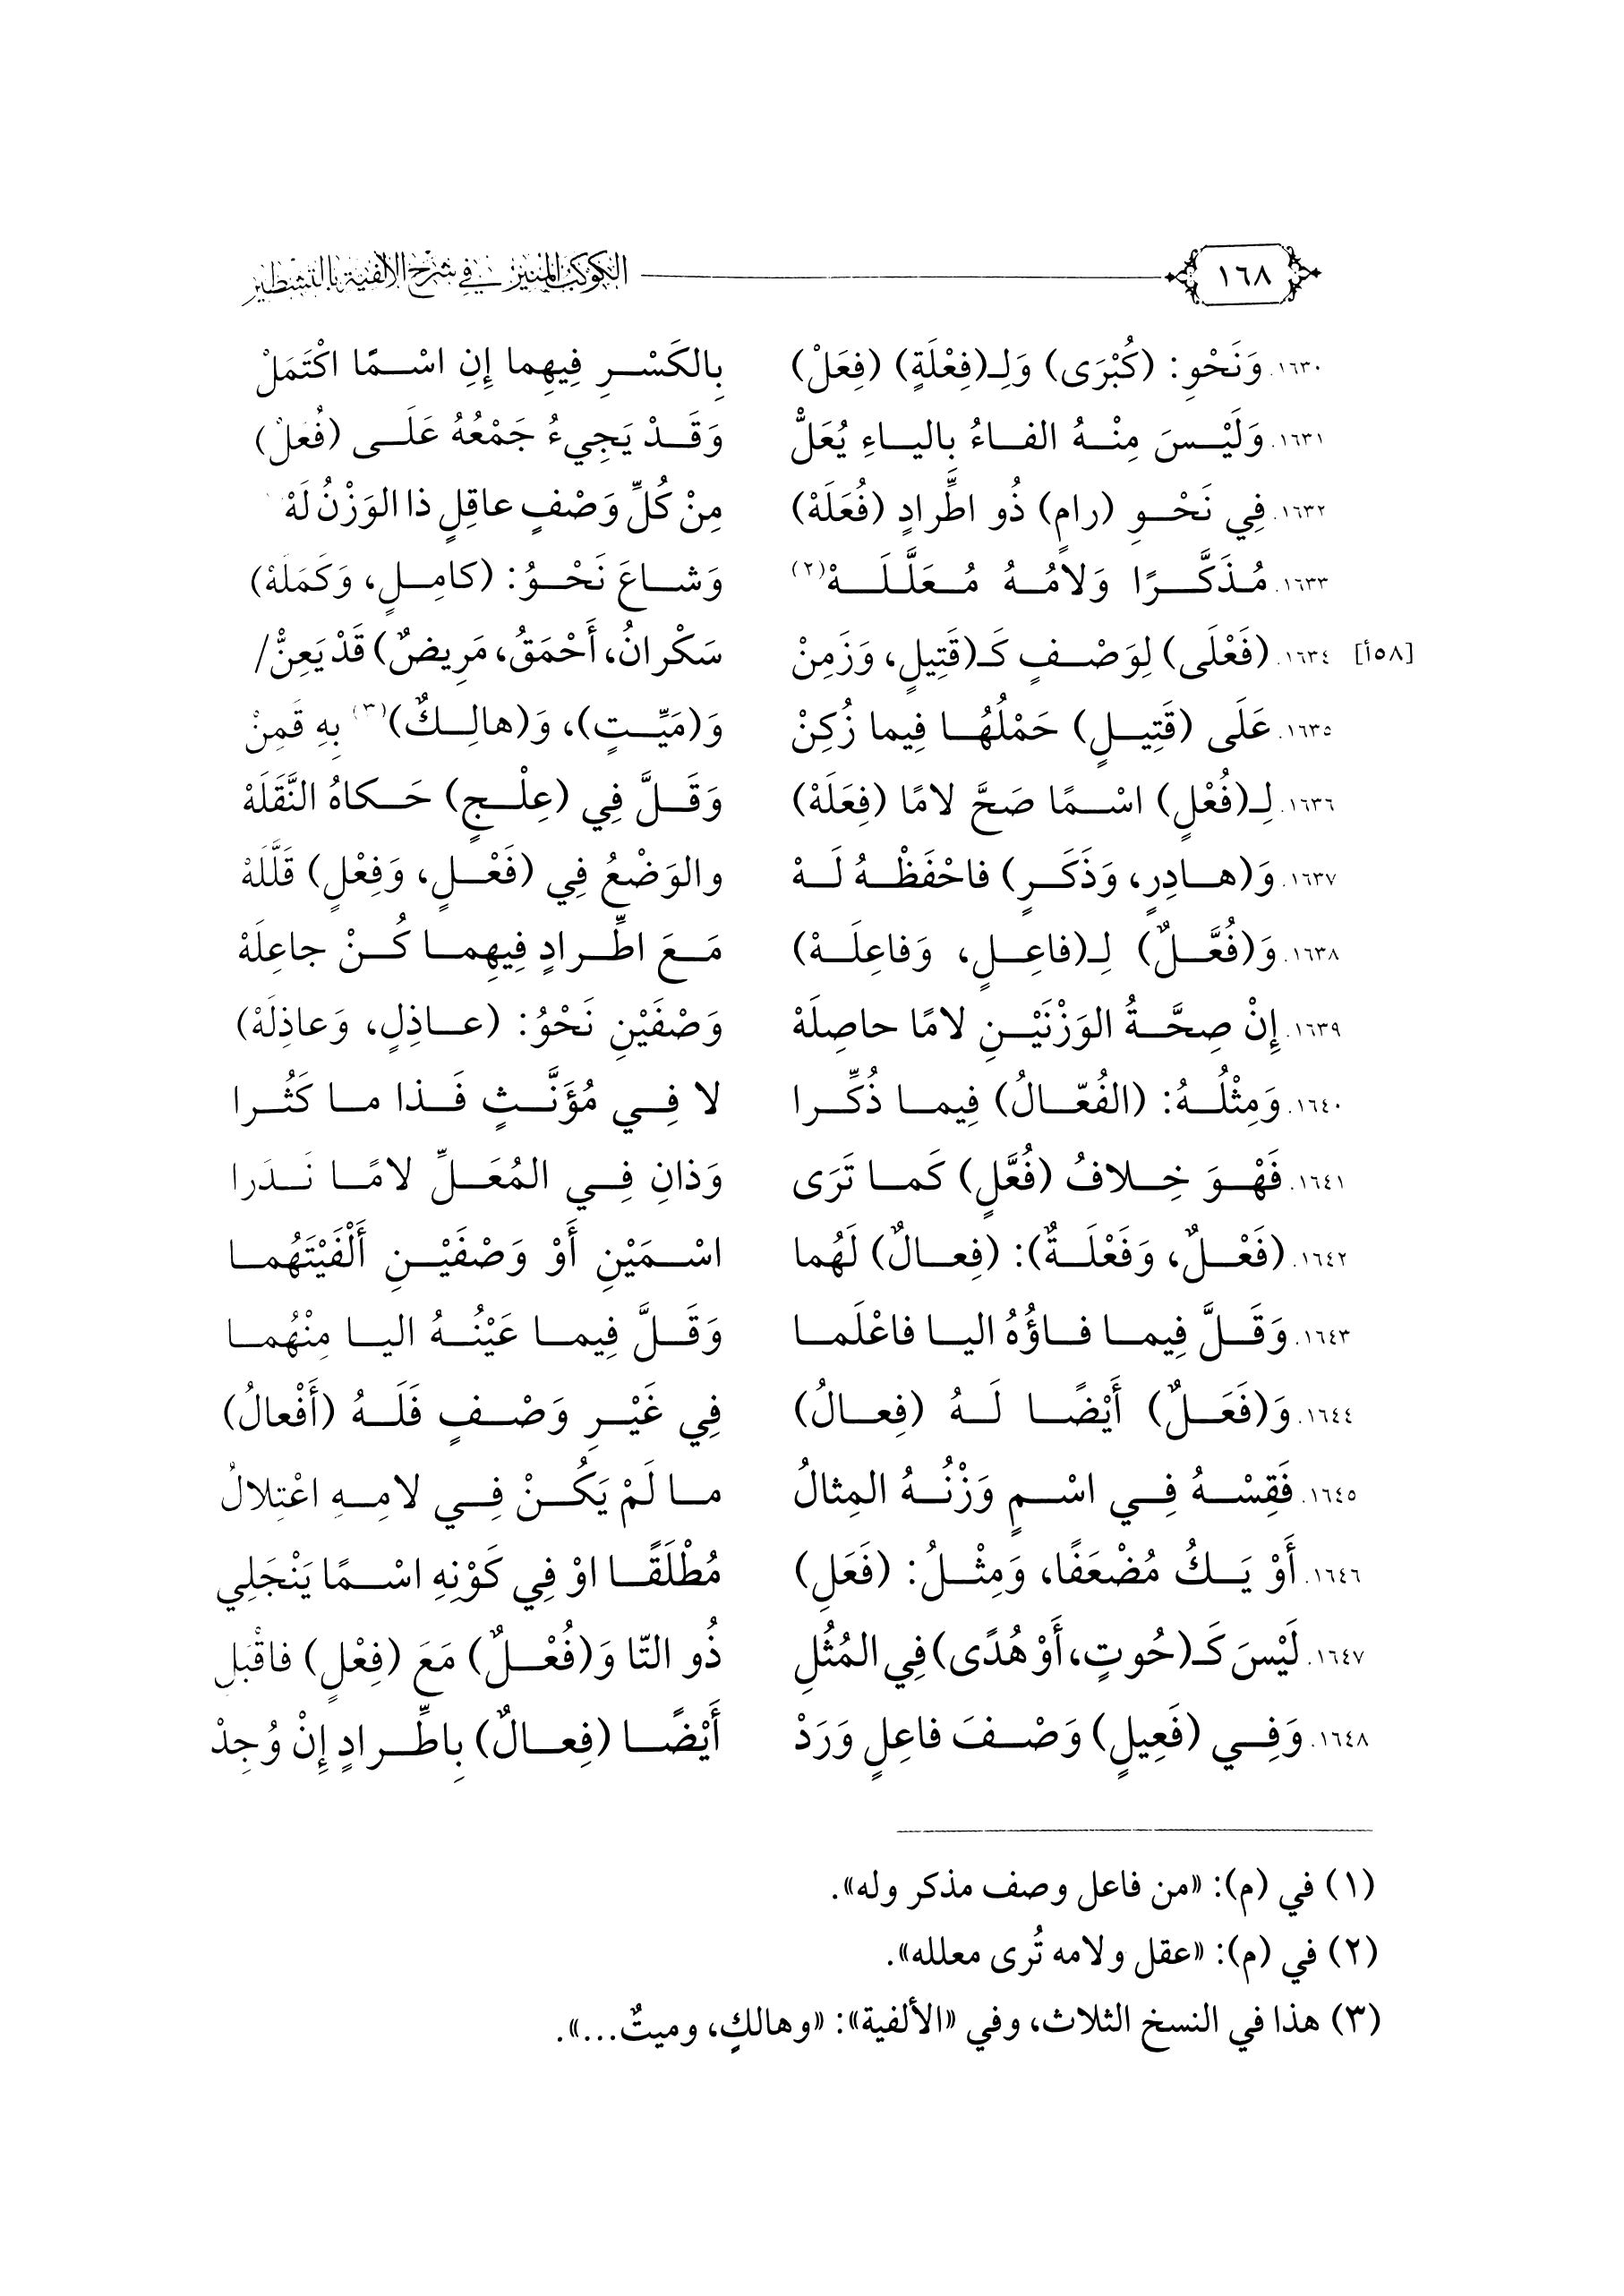 ١٦٨ الكوكب المنير في شرح الألفية بالتشطير
١٦٣٠. وَنَحْوِ: (كُبْرَى) وَلِـ(فِعْلَةٍ) (فِعَلْ) بِالكَسْرِ فِيهِما إِنِ اسْمًا اكْتَمَلْ
١٦٣١. وَلَيْسَ مِنْهُ الفاءُ بالياءِ يُعَلّْ وَقَدْ يَجِيءُ جَمْعُهُ عَلَى (فُعَلْ)
١٦٣٢. فِي نَحْوِ (رامٍ) ذُو اطِّرادٍ (فُعَلَهْ) مِنْ كُلِّ وَصْفٍ عاقِلٍ ذا الوَزْنُ لَهْ
١٦٣٣. مُذَكَّرًا وَلامُهُ مُعَلَّلَهْ(٢) وَشاعَ نَحْوُ: (كامِلٍ، وَكَمَلَهْ)
[٥٨أ] ١٦٣٤. (فَعْلَى) لِوَصْفٍ كَـ(قَتِيلٍ، وَزَمِنْ سَكْرانُ، أَحْمَقُ، مَرِيضٌ) قَدْ يَعِنّْ/
١٦٣٥. عَلَى (قَتِيلٍ) حَمْلُهُا فِيما زُكِنْ وَ(مَيِّتٍ)، وَ(هالِكٌ)(٣) بِهِ قَمِنْ
١٦٣٦. لِـ(فُعْلٍ) اسْمًا صَحَّ لامًا (فِعَلَهْ) وَقَلَّ فِي (عِلْجٍ) حَكاهُ النَّقَلَهْ
١٦٣٧. وَ(هادِرٍ، وَذَكَرٍ) فاحْفَظْهُ لَهْ والوَضْعُ فِي (فَعْلٍ، وَفِعْلٍ) قَلَّلَهْ
١٦٣٨. وَ(فُعَّلٌ) لِـ(فاعِلٍ، وَفاعِلَهْ) مَعَ اطِّرادٍ فِيهِما كُنْ جاعِلَهْ
١٦٣٩. إِنْ صِحَّةُ الوَزْنَيْنِ لامًا حاصِلَهْ وَصْفَيْنِ نَحْوُ: (عاذِلٍ، وَعاذِلَهْ)
١٦٤٠. وَمِثْلُهُ: (الفُعّالُ) فِيما ذُكِّرا لا فِي مُؤَنَّثٍ فَذا ما كَثُرا
١٦٤١. فَهْوَ خِلافُ (فُعَّلٍ) كَما تَرَى وَذانِ فِي المُعَلِّ لامًا نَدَرا
١٦٤٢. (فَعْلٌ، وَفَعْلَةٌ): (فِعالٌ) لَهُما اسْمَيْنِ أَوْ وَصْفَيْنِ أَلْفَيْتَهُما
١٦٤٣. وَقَلَّ فِيما فاؤُهُ اليا فاعْلَما وَقَلَّ فِيما عَيْنُهُ اليا مِنْهُما
١٦٤٤. وَ(فَعَلٌ) أَيْضًا لَهُ (فِعالُ) فِي غَيْرِ وَصْفٍ فَلَهُ (أَفْعالُ)
١٦٤٥. فَقِسْهُ فِي اسْمٍ وَزْنُهُ المِثالُ ما لَمْ يَكُنْ فِي لامِهِ اعْتِلالُ
١٦٤٦. أَوْ يَكُ مُضْعَفًا، وَمِثْلُ: (فَعَلِ) مُطْلَقًا اوْ فِي كَوْنِهِ اسْمًا يَنْجَلِي
١٦٤٧. لَيْسَ كَـ(حُوتٍ، أَوْ هُدًى) فِي المُثُلِ ذُو التّا وَ(فُعْلٌ) مَعَ (فِعْلٍ) فاقْبَلِ
١٦٤٨. وَفِي (فَعِيلٍ) وَصْفَ فاعِلٍ وَرَدْ أَيْضًا (فِعالٌ) بِاطِّرادٍ إِنْ وُجِدْ
(١) في (م): «من فاعل وصف مذكر وله».
(٢) في (م): «عقل ولامه تُرى معلله».
(٣) هذا في النسخ الثلاث، وفي «الألفية»: «وهالكٍ، وميتٌ...».